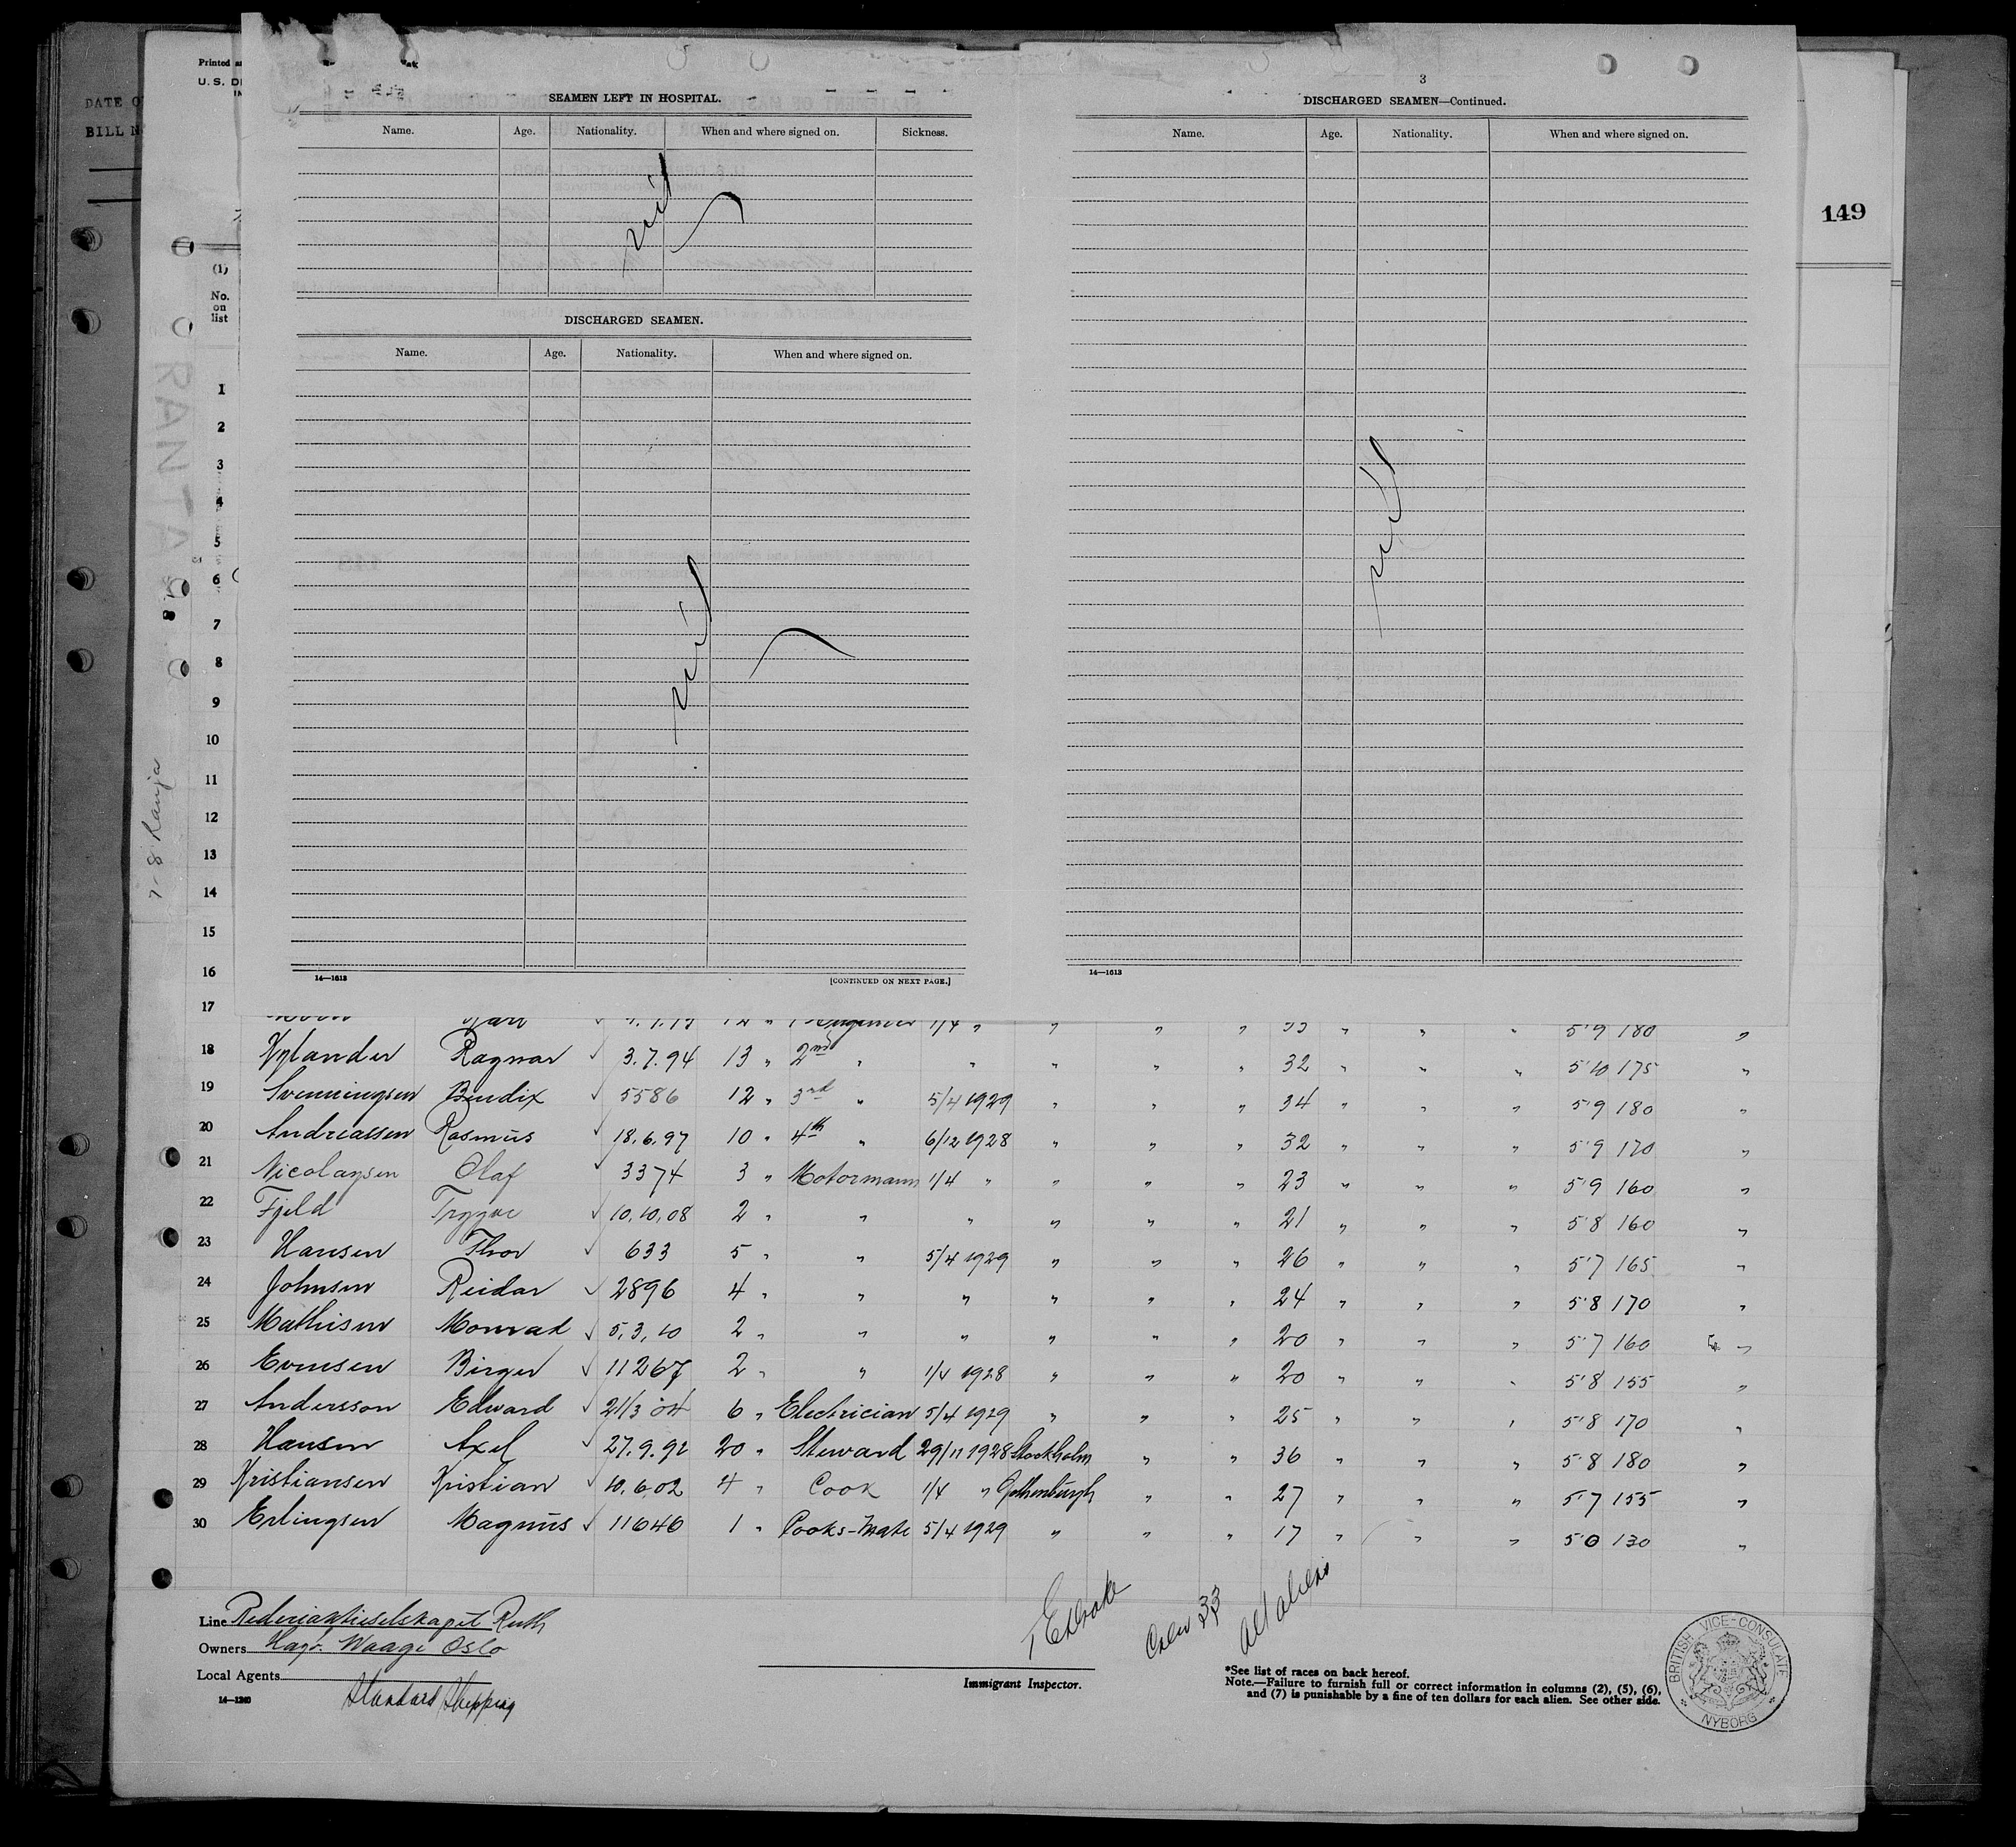 149
DATE O
BILL N
Printed a
U. S. D
SEAMEN LEFT IN HOSPITAL.
Name. Age. Nationality. When and where signed on. Sickness.
nil
DISCHARGED SEAMEN.
Name. Age. Nationality. When and where signed on.
nil
14—1613 [CONTINUED ON NEXT PAGE.]
3
DISCHARGED SEAMEN—Continued.
Name. Age. Nationality. When and where signed on.
nil
14—1613
RANJA
7-8 Ranja
(1)
No.
on
list
1
2
3
4
5
6
7
8
9
10
11
12
13
14
15
16
17 1/4 " " " " 33 " " " 5'9 180 "
18 Nylander Ragnar ✓ 3.7.94 13 " 2nd " " " " " 32 " " " 5'10 175 "
19 Svenningsen Bendix ✓ 5586 12 " 3rd " 5/4 1929 " " " 34 " " " 5'9 180 "
20 Andreassen Rasmus ✓ 18.6.97 10 " 4th " 6/12 1928 " " " 32 " " " 5'9 170 "
21 Nicolaysen Olaf ✓ 3374 3 " Motormann 1/4 " " " " 23 " " " 5'9 160 "
22 Fjeld Trygve ✓ 10.10.08 2 " " " " " " 21 " " " 5'8 160 "
23 Hansen Thor ✓ 633 5 " " 5/4 1929 " " " 26 " " " 5'7 165 "
24 Johnsen Reidar ✓ 2896 4 " " " " " " 24 " " " 5'8 170 "
25 Mathisen Monrad ✓ 5.3.10 2 " " " " " " 20 " " " 5'7 160 "
26 Evensen Birger ✓ 11267 2 " " 1/4 1928 " " " 20 " " " 5'8 155 "
27 Andersson Edward ✓ 21/3 04 6 " Electrician 5/4 1929 " " " 25 " " " 5'8 170 "
28 Hansen Axel ✓ 27.9.92 20 " Steward 29/11 1928 Stockholm " " 36 " " " 5'8 180 "
29 Kristiansen Kristian ✓ 10.6.02 4 " Cook 1/4 " Gothenburgh " " 27 " " " 5'7 155 "
30 Erlingsen Magnus ✓ 11646 1 " Cooks-Mate 5/4 1929 " " " 17 " " " 5'0 130 "
Line Rederiaktieselskapet Ruth
Owners Hagb. Waage Oslo
Local Agents
Standard Shipping
14—1240
Immigrant Inspector.
Crew 33
all aliens
*See list of races on back hereof.
Note.—Failure to furnish full or correct information in columns (2), (5), (6),
and (7) is punishable by a fine of ten dollars for each alien. See other side.
BRITISH VICE-CONSULATE
NYBORG